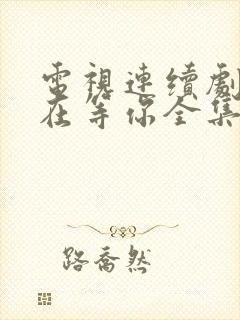 電視連續劇
在等你全集
路喬然